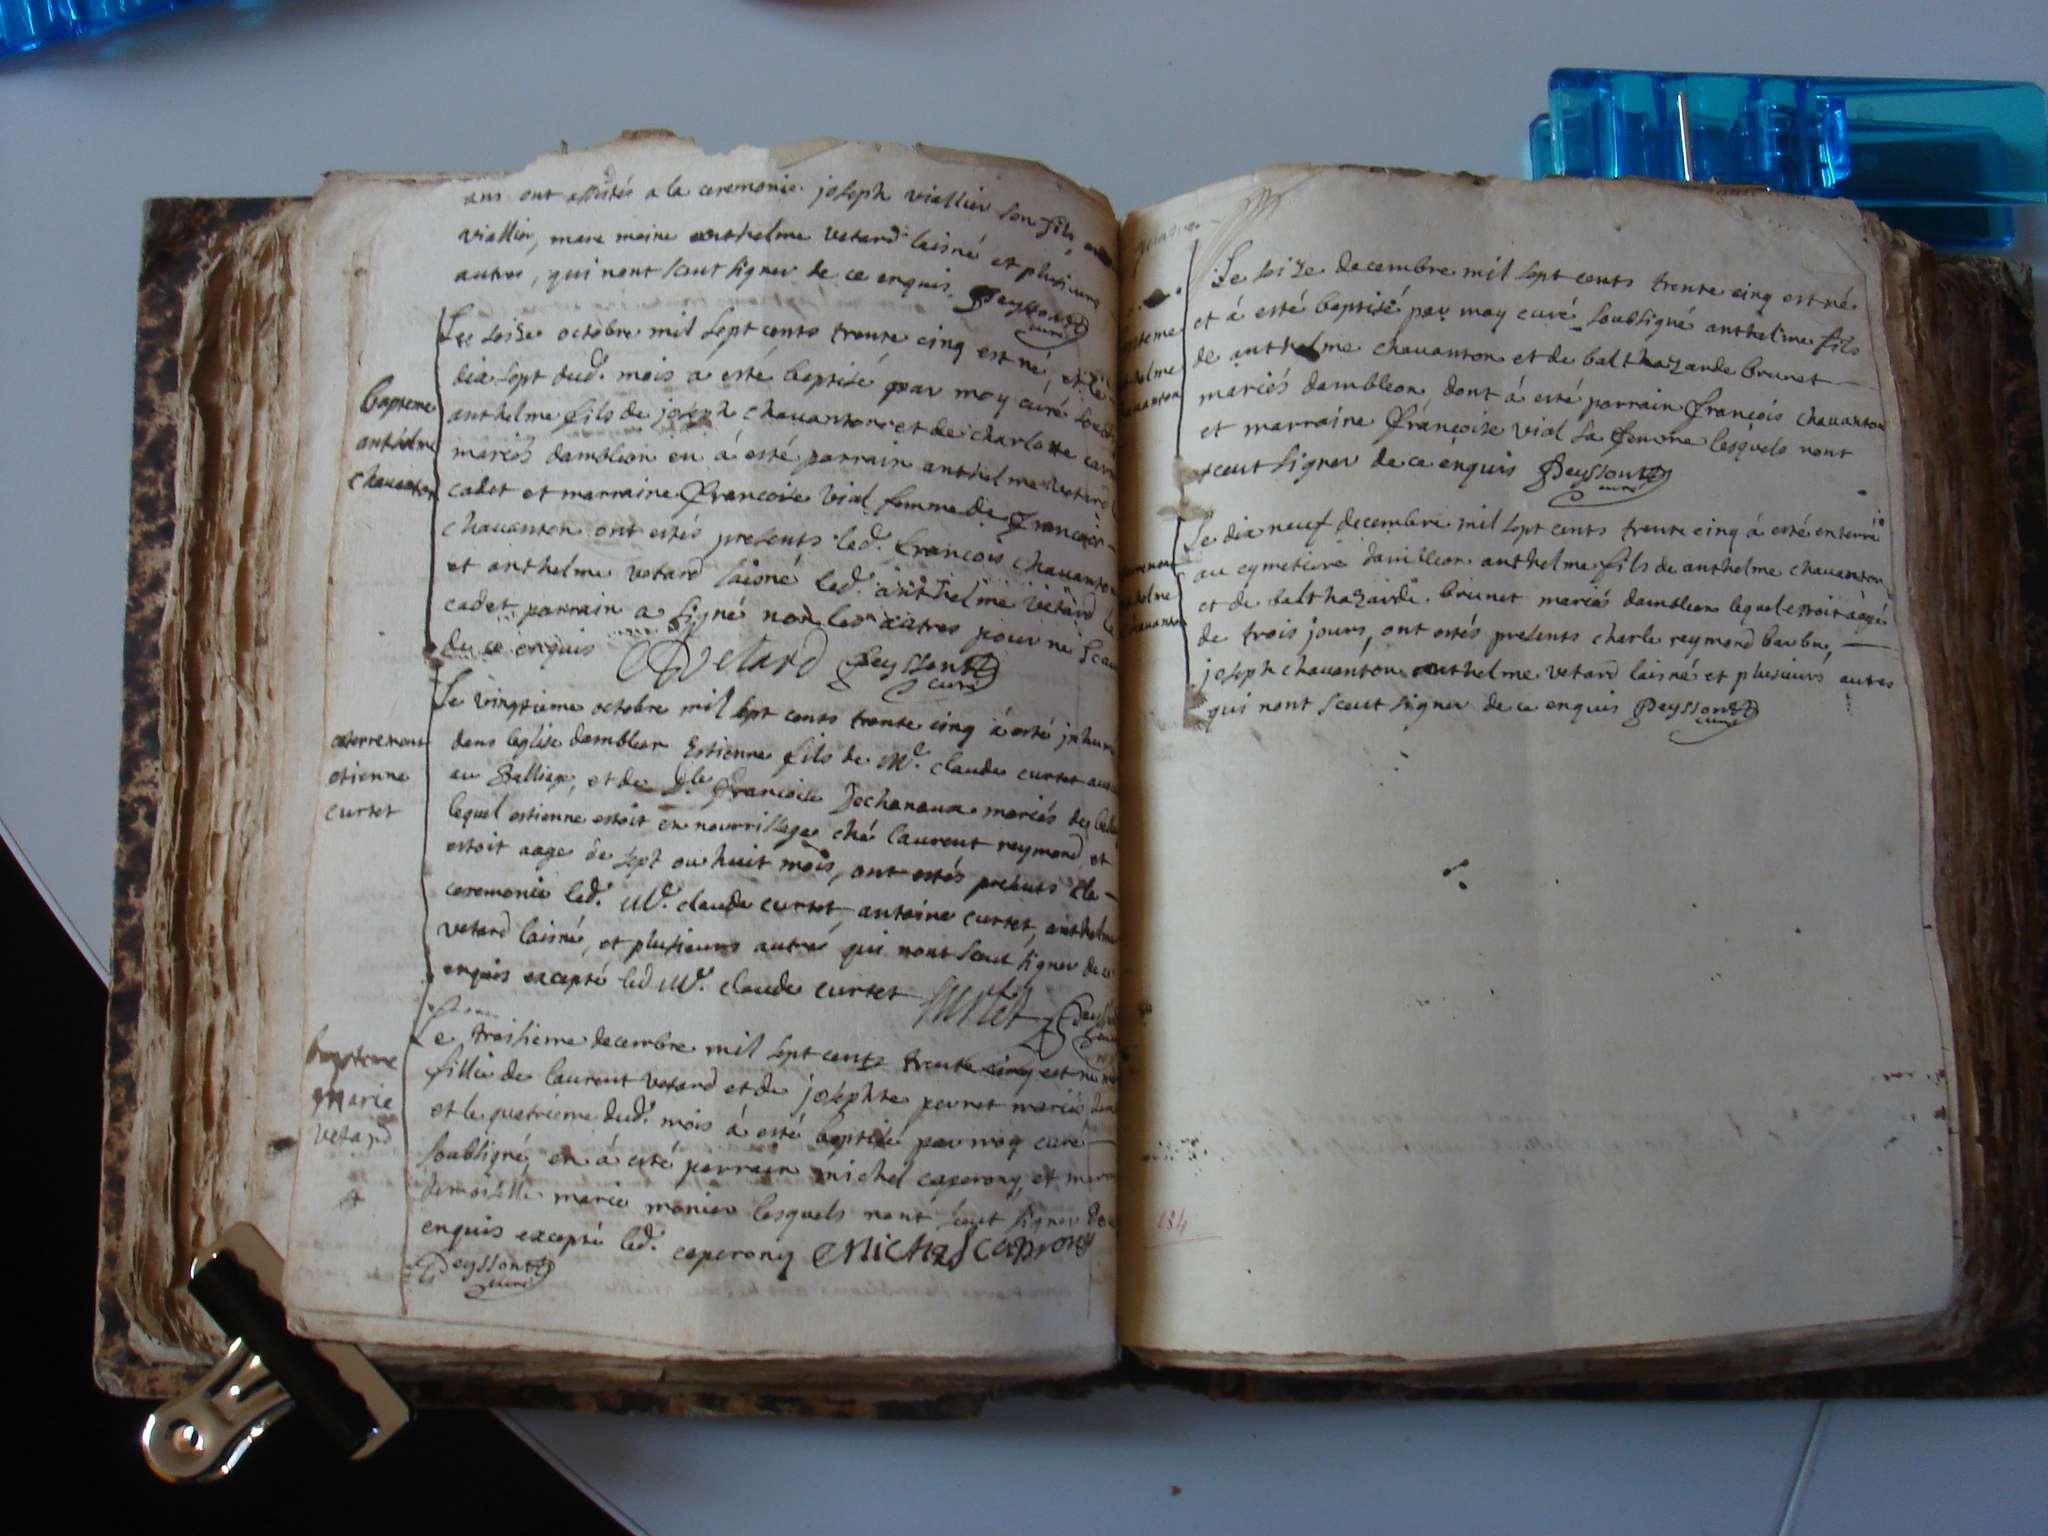 ans ont assistés a la ceremonie joseph viallier son fils
viallier, mare moine anthelme vetard laisné et plusieurs
autres, qui nont sceut signer de ce enquis. Peyssont
curé
Le seize octobre mil sept cents trente cinq est né, et le
dix sept dud. mois a esté baptisé par moy curé
anthelme fils de joseph chauanton et de charlotte
mariés damblion en á esté parrain anthelme vetard
cadet et marraine françoise vial femme de françois
chauanton ont estés presents led. françois chauanton
et anthelme vetard laisné led. anthelme vetard le
cadet parrain a signé non les autres pour ne
de ce enquis Vetard Peyssont
curé
bapteme
anthelme
chauanton
Le vingtieme octobre mil sept cents trente cinq á esté
dans leglise dambleon Estienne fils de Mr. claude curtet
au Balliage, et de dle. françoise mariés de
lequel estienne estoit en nourrissage ché laurent reymond, et
estoit aage de sept ou huit mois, ont estés presents a la
ceremonie led. Mr. claude curtet, antoine curtet, anthelme
vetard laisné, et plusieurs autre qui nont sceut signer de ce
enquis excepté led Mr. claude curtet Curtet
enterrement
etienne
curtet
Le troisieme decembre mil sept cents trente cinq est né
fillie de laurent vetard et de josephte peuret mariés
et le quatrieme dud. mois á esté baptisé par moy curé
soubsigné, en á esté parrain michel caperony, et
demoiselle marie monier lesquels nont sceut signer de
enquis excepté led. caperony Michel Caprony
Peyssont
curé
bapteme
marie
vetard
Le seize decembre mil sept cents trente cinq est né
et á esté baptisé par moy curé soubsigné anthelme fils
de anthelme chauanton et de balthazarde brunet
mariés dambleon, dont á esté parrain françois chauanton
et marraine françoise vial sa femme lesquels nont
sceut signer de ce enquis Peyssont
curé
Le dix neuf decembre mil sept cents trente cinq á esté enterré
au cymetiere dambleon anthelme fils de anthelme chauanton
et de balthazarde brunet mariés dambleon lequel estoit aagé
de trois jours, ont estés presents charle reymond barbu,
joseph chauanton anthelme vetard laisné et plusieurs autres
qui nont sceut signer de ce enquis Peyssont
curé
184